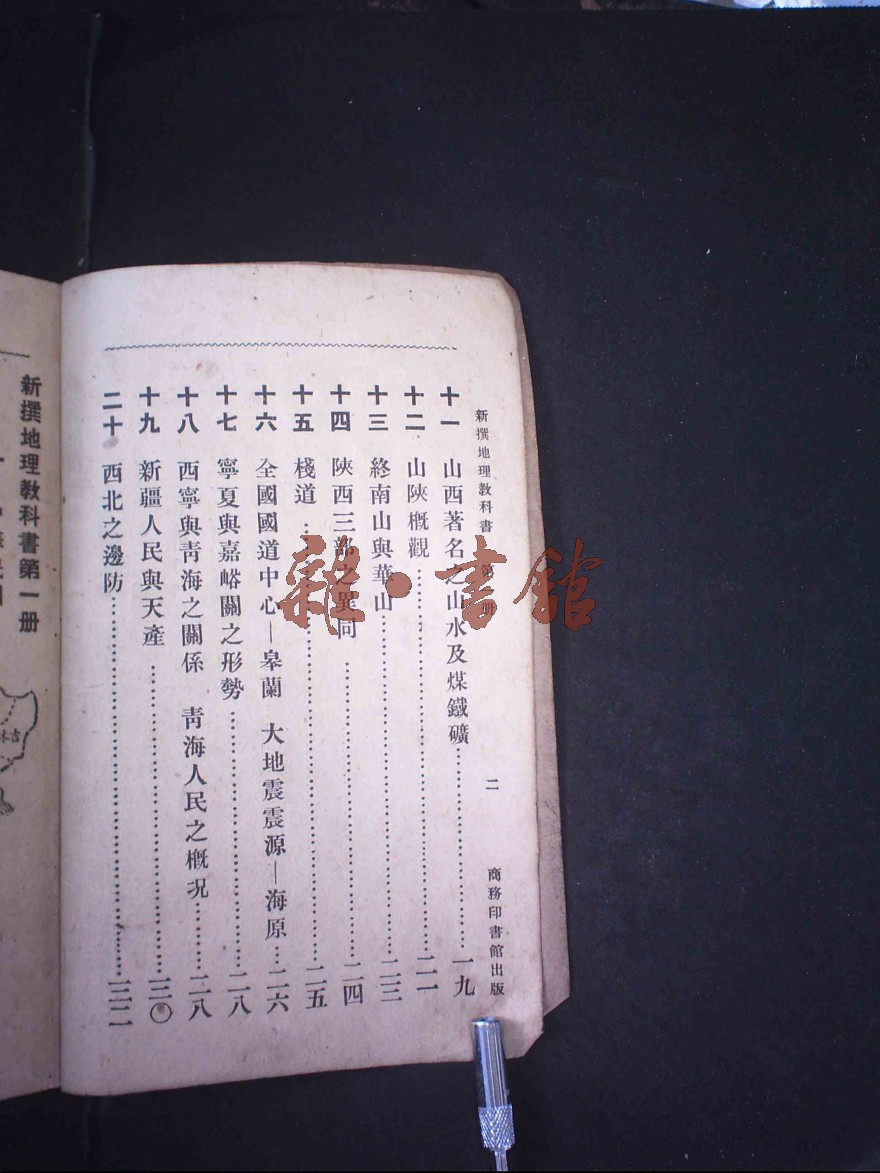 新撰地理教科書 第一册 二 商務印書館出版
十一 山西著名之山水及煤鐵礦……一九
十二 山陝概觀……二一
十三 終南山與華山……二三
十四 陝西三部之異同……二四
十五 棧道……二五
十六 全國國道中心—皋蘭 大地震震源—海原…二六
十七 寧夏與嘉峪關之形勢……二八
十八 西寧與青海之關係 青海人民之概況……二八
十九 新疆人民與天產……三〇
二十 西北之邊防……三二
新撰地理教科書第一册
吉林
雜·書館